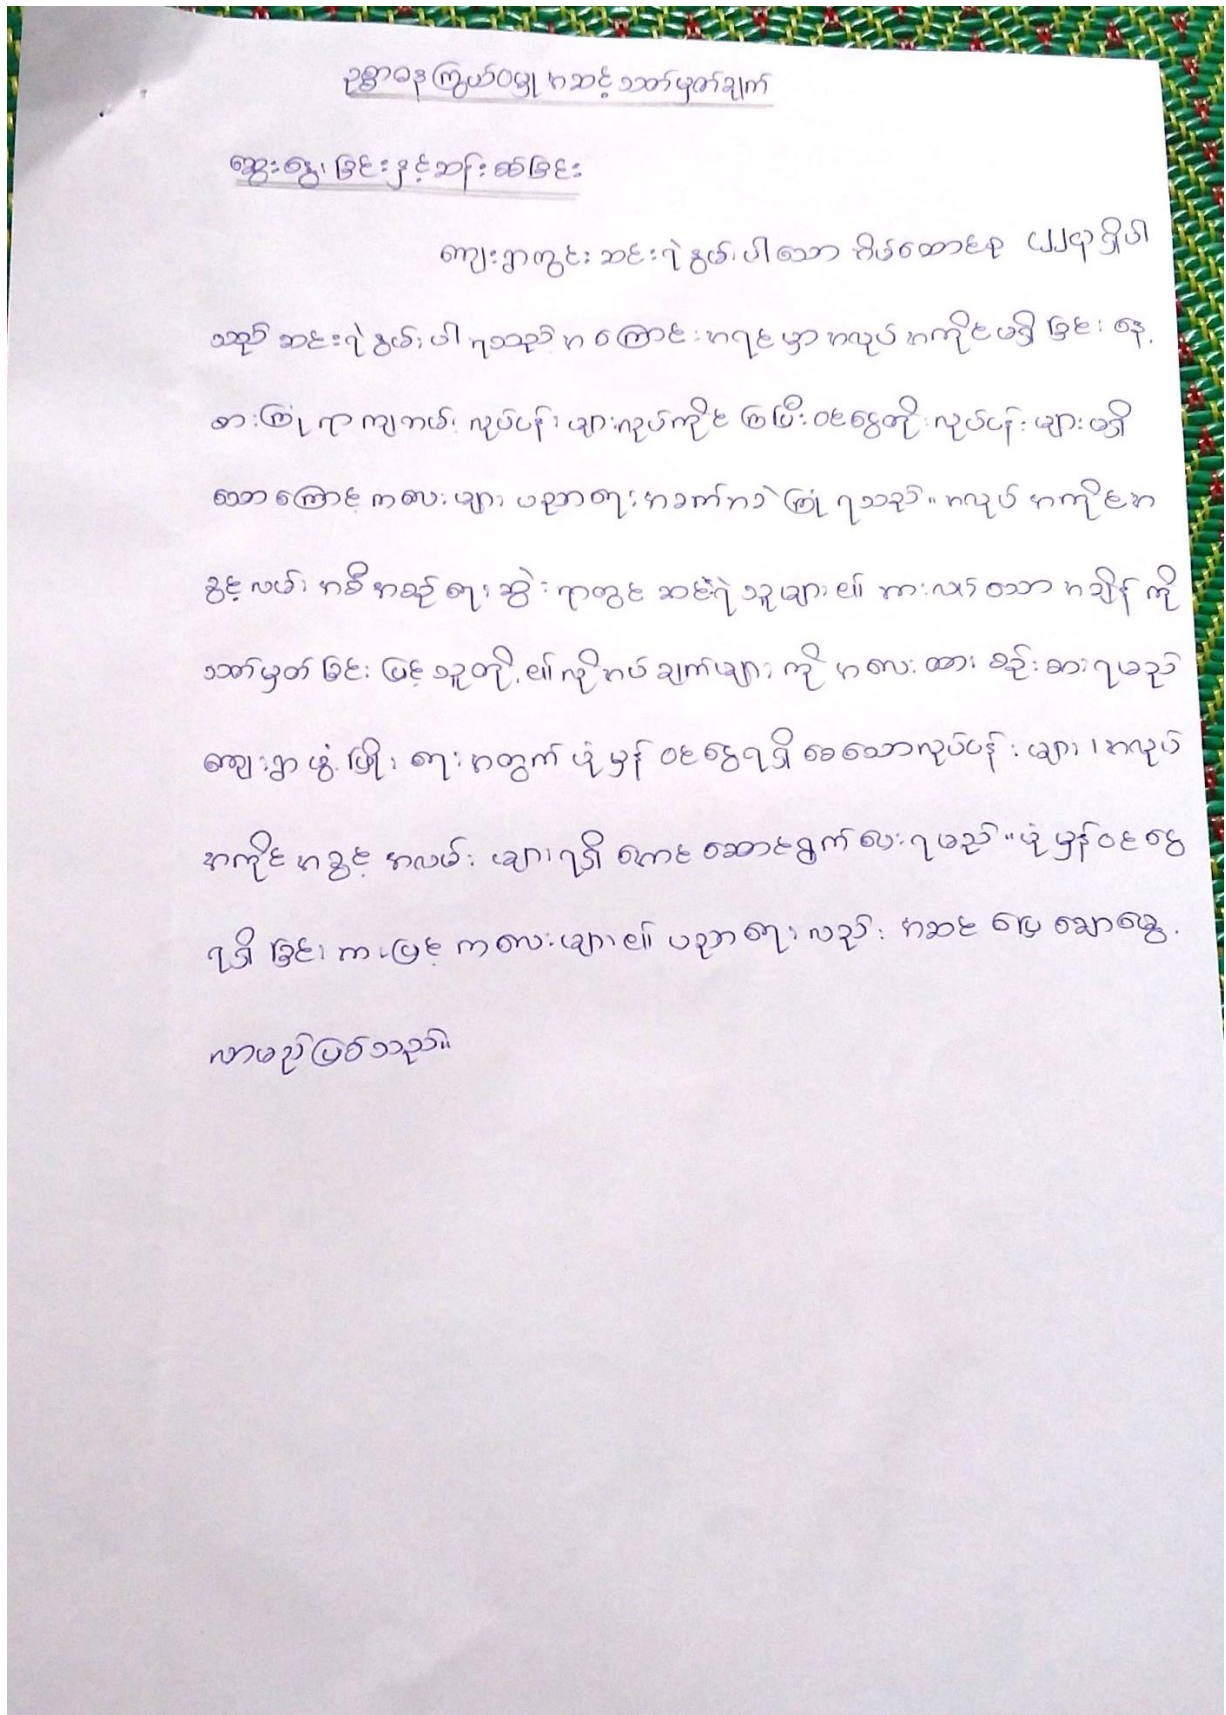 ဥစ္စာဓနကြွယ်ဝမှု အဆင့်သတ်မှတ်ချက်
ဆွေးနွေးခြင်းနှင့်ဆန်းစစ်ခြင်း
ကျေးရွာတွင်း ဆင်းရဲနွမ်းပါးသော အိမ်ထောင်စု ၄၂၂စုရှိပါ
သည် ဆင်းရဲနွမ်းပါးရသည့်အကြောင်းအရင်းမှာ အလုပ်အကိုင်မရှိခြင်း၊ နေ့
စားကြုံရာကျပမ်းလုပ်ငန်းများလုပ်ကိုင်ကြပြီး ဝင်ငွေတိုးလုပ်ငန်းများမရှိ
သောကြောင့် ကလေးများ ပညာရေးအခက်အခဲကြုံရသည်။ အလုပ်အကိုင်အ
ခွင့်လမ်းအစီအစဉ်ရေးဆွဲရာတွင် ဆင်းရဲသူများ၏ အားလပ်သောအချိန်ကို
သတ်မှတ်ခြင်းဖြင့် သူတို့၏လိုအပ်ချက်များကို အလေးထားစဉ်းစားရမည်
ကျေးရွာဖွံ့ဖြိုးရေးအတွက် ပုံမှန်ဝင်ငွေရရှိစေသောလုပ်ငန်းများ၊ အလုပ်
အကိုင်အခွင့်အလမ်းများရရှိအောင်ဆောင်ရွက်ပေးရမည်။ ပုံမှန်ဝင်ငွေ
ရရှိခြင်းအားဖြင့် ကလေးများ၏ ပညာရေးလည်း အဆင်ပြေချောမွေ့
လာမည်ဖြစ်သည်။